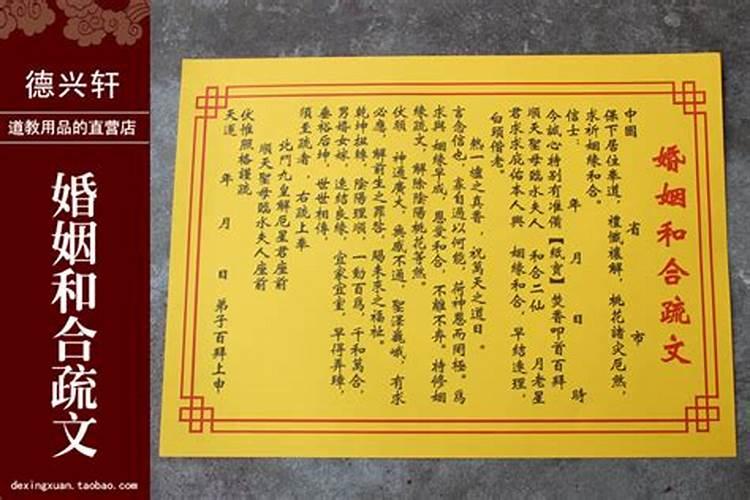 德兴轩
道教用品的直营店
婚姻和合疏文
dexingxuan.taobao.com
婚姻和合疏文
中國 省 市
保下居住奉道，禮懺禳解，桃花諸災厄煞，
求祈姻緣和合。
信士： 年 月 日 時
今誠心特別有准備【紙寶】焚香叩首百拜
順天聖母臨水夫人 和合二仙 月老星
君求求庇佑本人與 姻緣和合，早結連理，
白頭偕老。
熱一爐之真香，祝萬天之道日。
言念信也，寡自過以何能，荷神恩而罔極。爲
求與 姻緣早成，恩愛和合，不離不弃。特修姻
緣疏文，解除陰陽桃花等煞。
伏願 神通廣大，無感不通，聖澤巍峨，有求
必應，解前生之罪咎，賜未來之福祉。
乾坤扭轉，陰陽理順，一動百爲，千和萬合，
男婚女嫁，速結良緣，宜家宜室，早得弄璋，
垂裕后坤，世世相傳，
須至疏者，右疏上奉
北鬥九皇解厄星君座前
順天聖母臨水夫人座前
伏惟照格謹疏
天運 年 月 日 弟子百拜上申